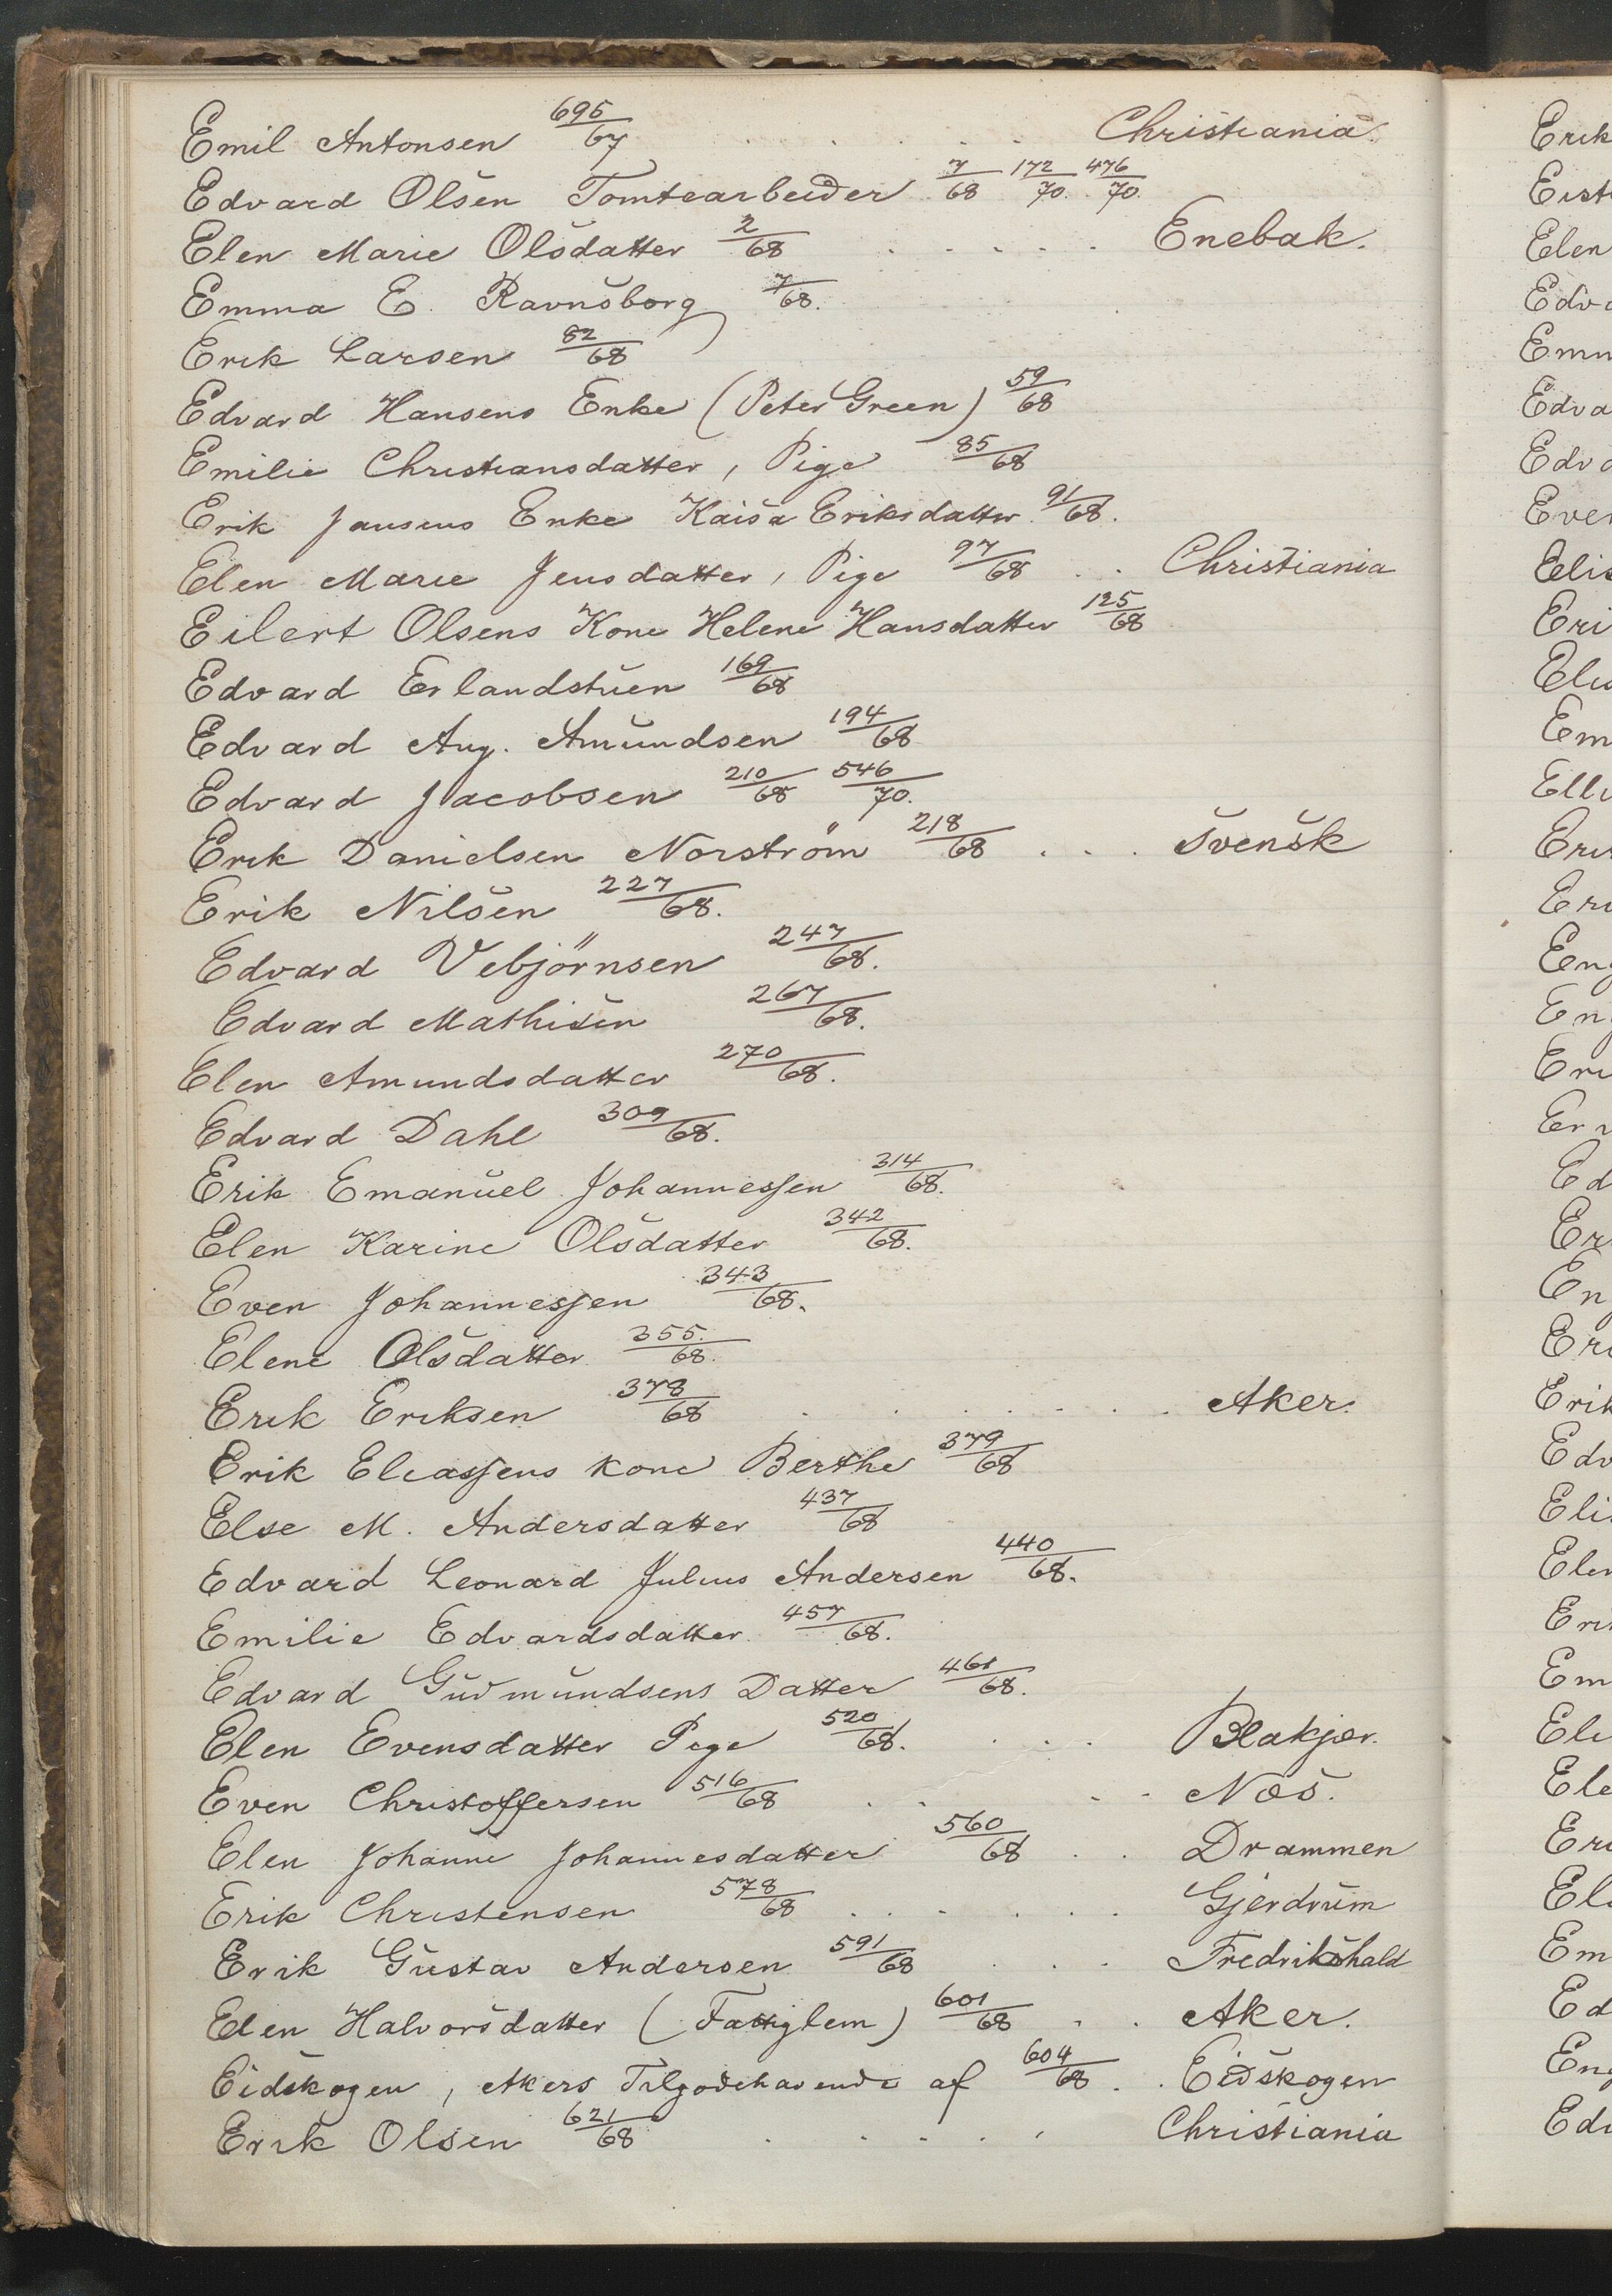 Emil Antonsen 695/67 . . . . . Christiania.
Edvard Olsen Tomtearbeider 7/68 172/70. 476/70.
Elen Marie Olsdatter 2/68 . . . . . Enebak.
Emma E. Ravnsborg 7/68.
Erik Larsen 82/68
Edvard Hansens Enke (Peter Green) 59/68
Emilie Christiansdatter, Pige 85/68
Erik Jansens Enke Kaisa Eriksdatter 91/68.
Elen Marie Jensdatter, Pige 97/68 . . Christiania
Eilert Olsens Kone Helene Hansdatter 125/68
Edvard Erlandstuen 169/68
Edvard Aug. Amundsen 194/68
Edvard Jacobsen 210/68 546/70.
Erik Danielsen Norström 218/68 . . . svensk
Erik Nilsen 227/68.
Edvard Vebjörnsen 247/68.
Edvard Mathisen 267/68.
Elen Amundsdatter 270/68.
Edvard Dahl 309/68.
Erik Emanuel Johannessen 314/68.
Elen Karine Olsdatter 342/68.
Even Johannessen 343/68.
Elene Olsdatter 355./68.
Erik Eriksen 378/68 . . . . . . Aker.
Erik Eleassens kone Berthe 379/68
Else M. Andersdatter 437/68
Edvard Leonard Julius Andersen 440/68.
Emilie Edvardsdatter 457/68.
Edvard Gudmundsens Datter 461/68.
Elen Evensdatter Pige 520/68. . . . Blakjær.
Even Christoffersen 516/68 . . . . Næs.
Elen Johanne Johannesdatter 560/68 . . Drammen
Erik Christensen 578/68 . . . . . . Gjerdrum
Erik Gustav Andersen 591/68 . . . Fredrikshald
Elen Halvorsdatter (Fattiglem) 601/68 . . Aker.
Eidskogen, Akers Tilgodehavende af 604/68 . . Eidskogen
Erik Olsen 621/68 . . . . . Christiania